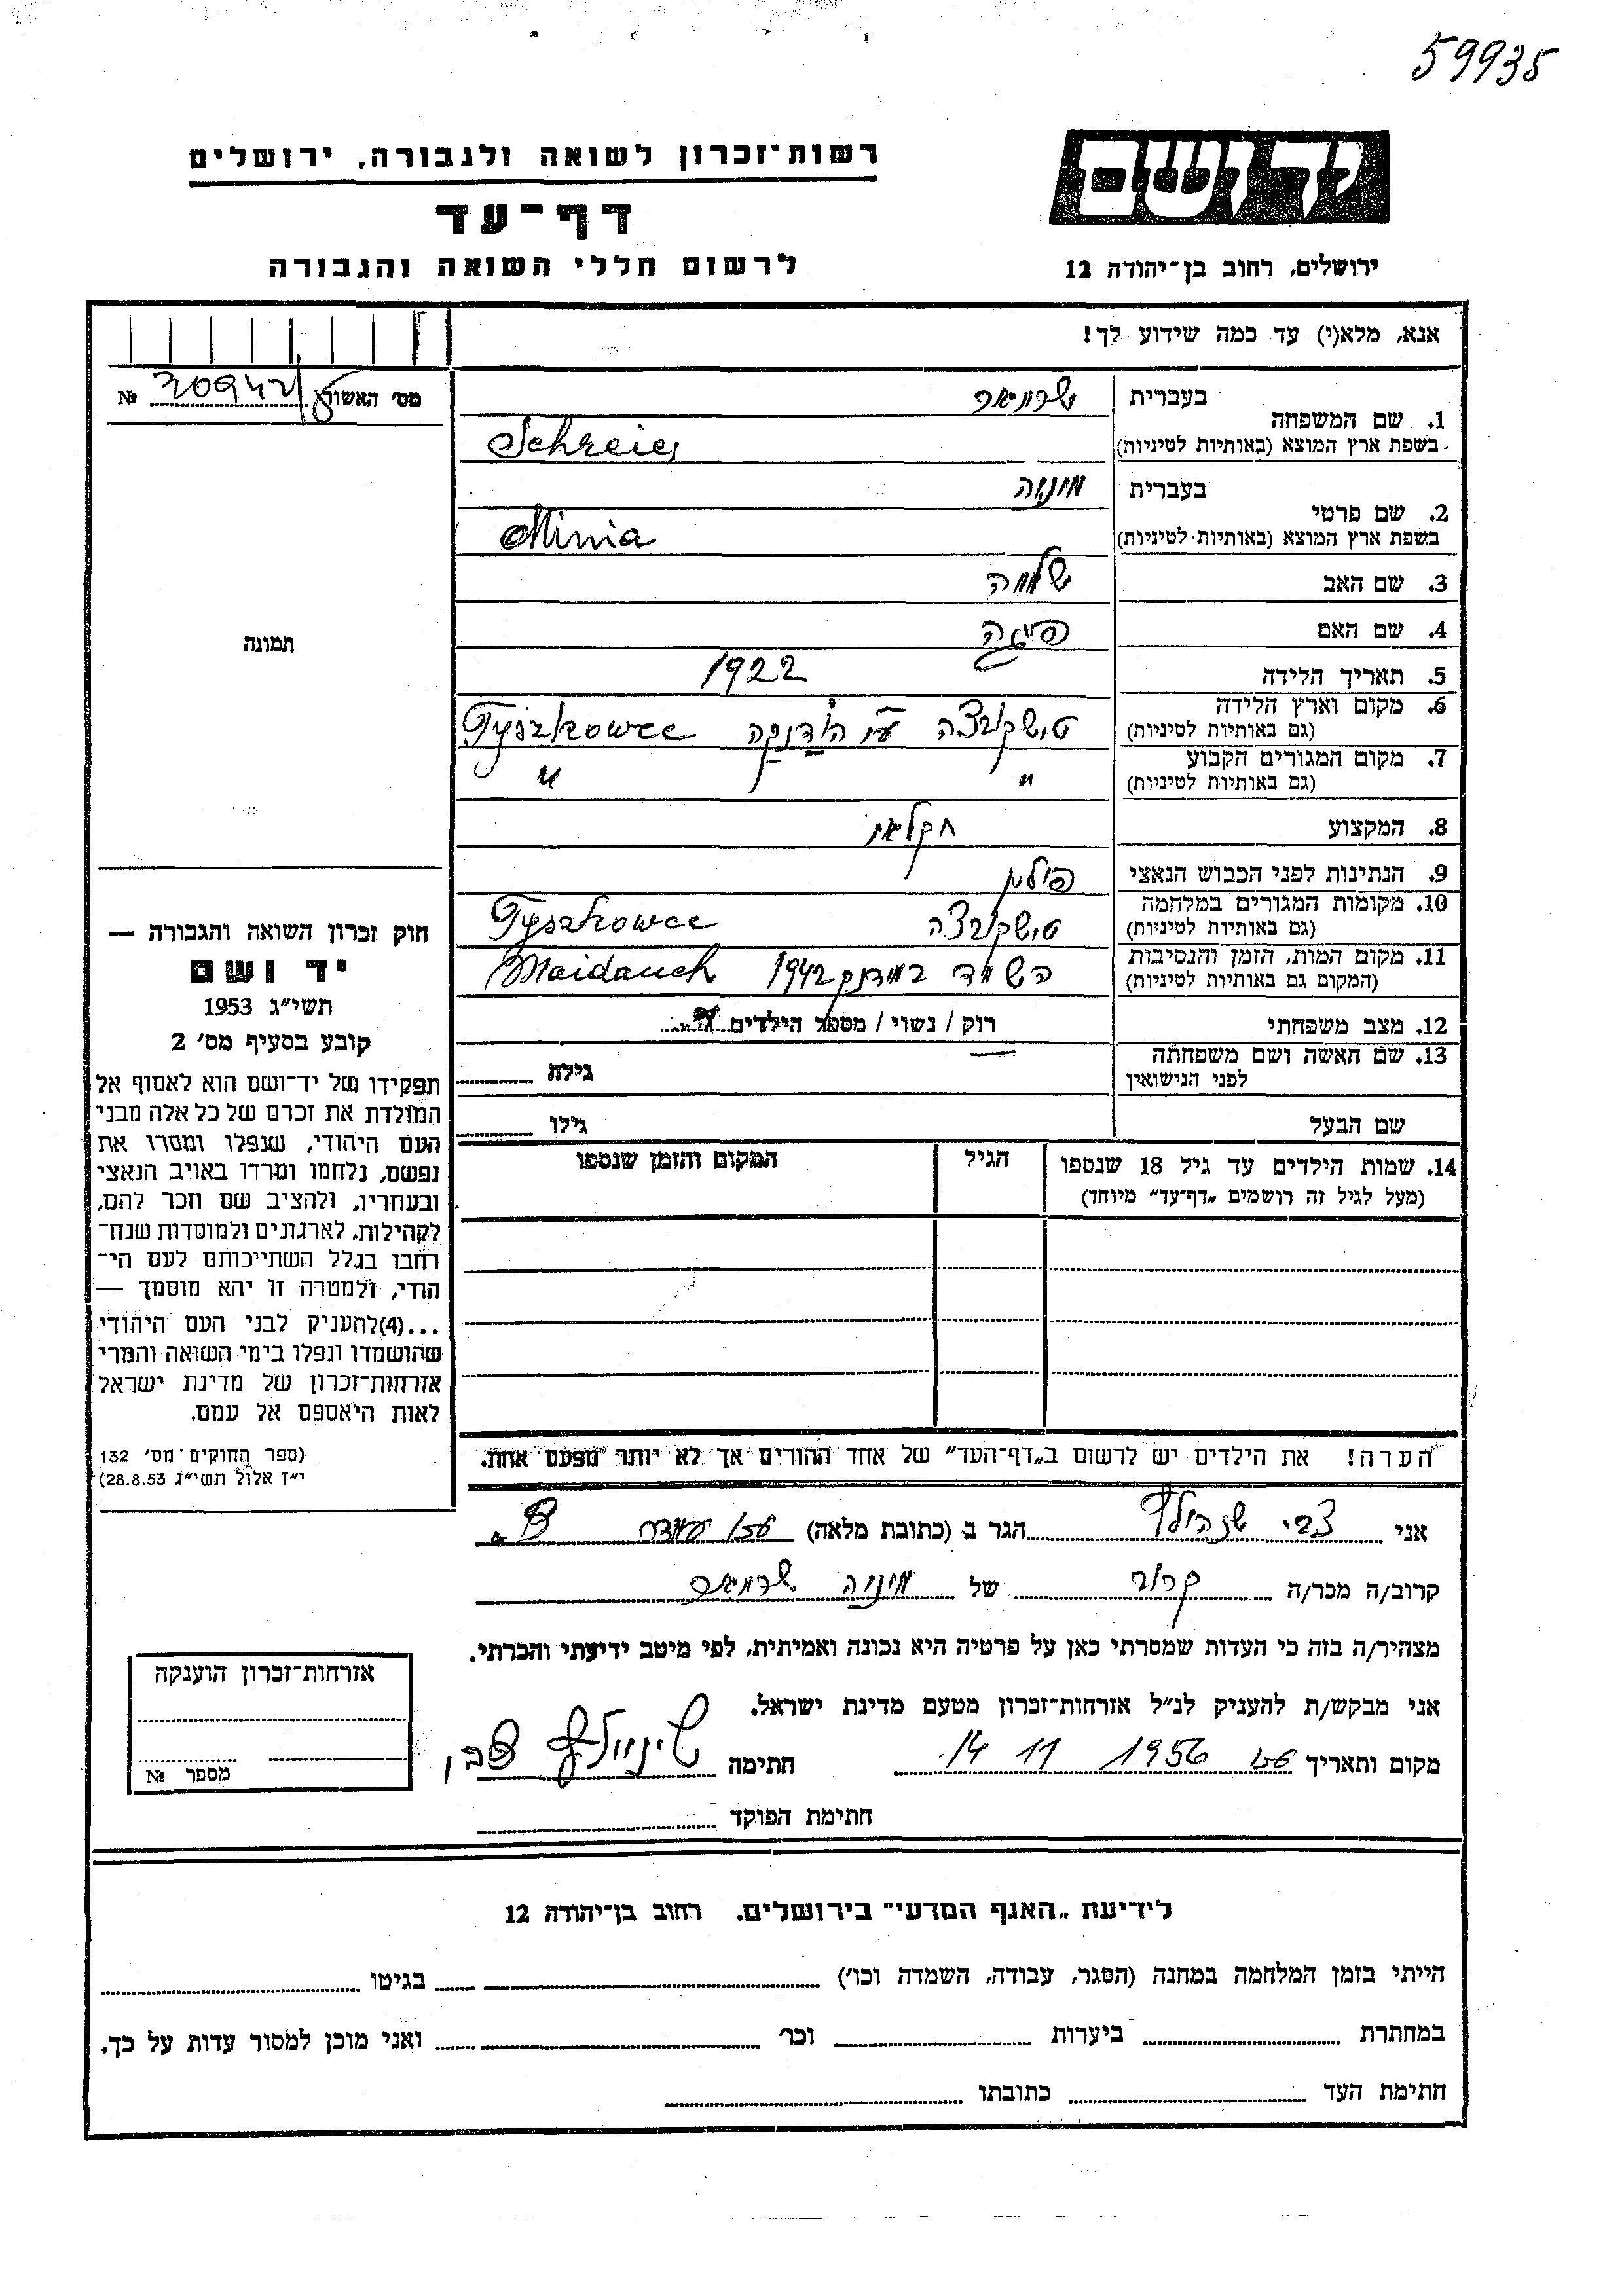 59935
יד ושם
רשות־זכרון לשואה ולגבורה, ירושלים
דף־עד
לרשום חללי השואה והגבורה
ירושלים, רחוב בן־יהודה 12
אנא, מלא(י) עד כמה שידוע לך!
מס׳ האשור № 20942
1. שם המשפחה
בעברית שרייאר
בשפת ארץ המוצא (באותיות לטיניות) Schreier
2. שם פרטי
בעברית מינה
בשפת ארץ המוצא (באותיות לטיניות) Minia
3. שם האב שלמה
4. שם האם פייגה
5. תאריך הלידה 1922
6. מקום וארץ הלידה טישקובצה ע״י הורדנקה Tyszkowce
(גם באותיות לטיניות)
7. מקום המגורים הקבוע " " "
(גם באותיות לטיניות)
8. המקצוע חקלאי
9. הנתינות לפני הכבוש הנאצי פולין
10. מקומות המגורים במלחמה טישקובצה Tyszkowce
(גם באותיות לטיניות)
11. מקום המות, הזמן והנסיבות השמד במידנק 1942 Maidanek
(המקום גם באותיות לטיניות)
12. מצב משפחתי רוק / נשוי / מספר הילדים
13. שם האשה ושם משפחתה גילה
לפני הנישואין
שם הבעל גילו
14. שמות הילדים עד גיל 18 שנספו הגיל המקום והזמן שנספו
(מעל לגיל זה רושמים „דף־עד״ מיוחד)
הערה! את הילדים יש לרשום ב„דף־העד״ של אחד ההורים אך לא יותר מפעם אחת.
תמונה
חוק זכרון השואה והגבורה —
יד ושם
תשי״ג 1953
קובע בסעיף מס׳ 2
תפקידו של יד־ושם הוא לאסוף אל
המולדת את זכרם של כל אלה מבני
העם היהודי, שנפלו ומסרו את
נפשם, נלחמו ומרדו באויב הנאצי
ובעוזריו, ולהציב שם וזכר להם,
לקהילות, לארגונים ולמוסדות שנח־
רבו בגלל השתייכותם לעם הי־
הודי, ולמטרה זו יהא מוסמך —
...(4)להעניק לבני העם היהודי
שהושמדו ונפלו בימי השואה והמרי
אזרחות־זכרון של מדינת ישראל
לאות היאספם אל עמם.
(ספר החוקים מס׳ 132
י״ז אלול תשי״ג 28.8.53)
אני צבי הגר ב (כתובת מלאה)
קרוב/ה מכר/ה קרוב של מינה שרייאר
מצהיר/ה בזה כי העדות שמסרתי כאן על פרטיה היא נכונה ואמיתית, לפי מיטב ידיעתי והכרתי.
אני מבקש/ת להעניק לנ״ל אזרחות־זכרון מטעם מדינת ישראל.
מקום ותאריך 14 11 1956 חתימה
חתימת הפוקד
אזרחות־זכרון הוענקה
מספר №
לידיעת „האגף המדעי״ בירושלים. רחוב בן־יהודה 12
הייתי בזמן המלחמה במחנה (הסגר, עבודה, השמדה וכו׳) בגיטו
במחתרת ביערות וכו׳ ואני מוכן למסור עדות על כך.
חתימת העד כתובתו